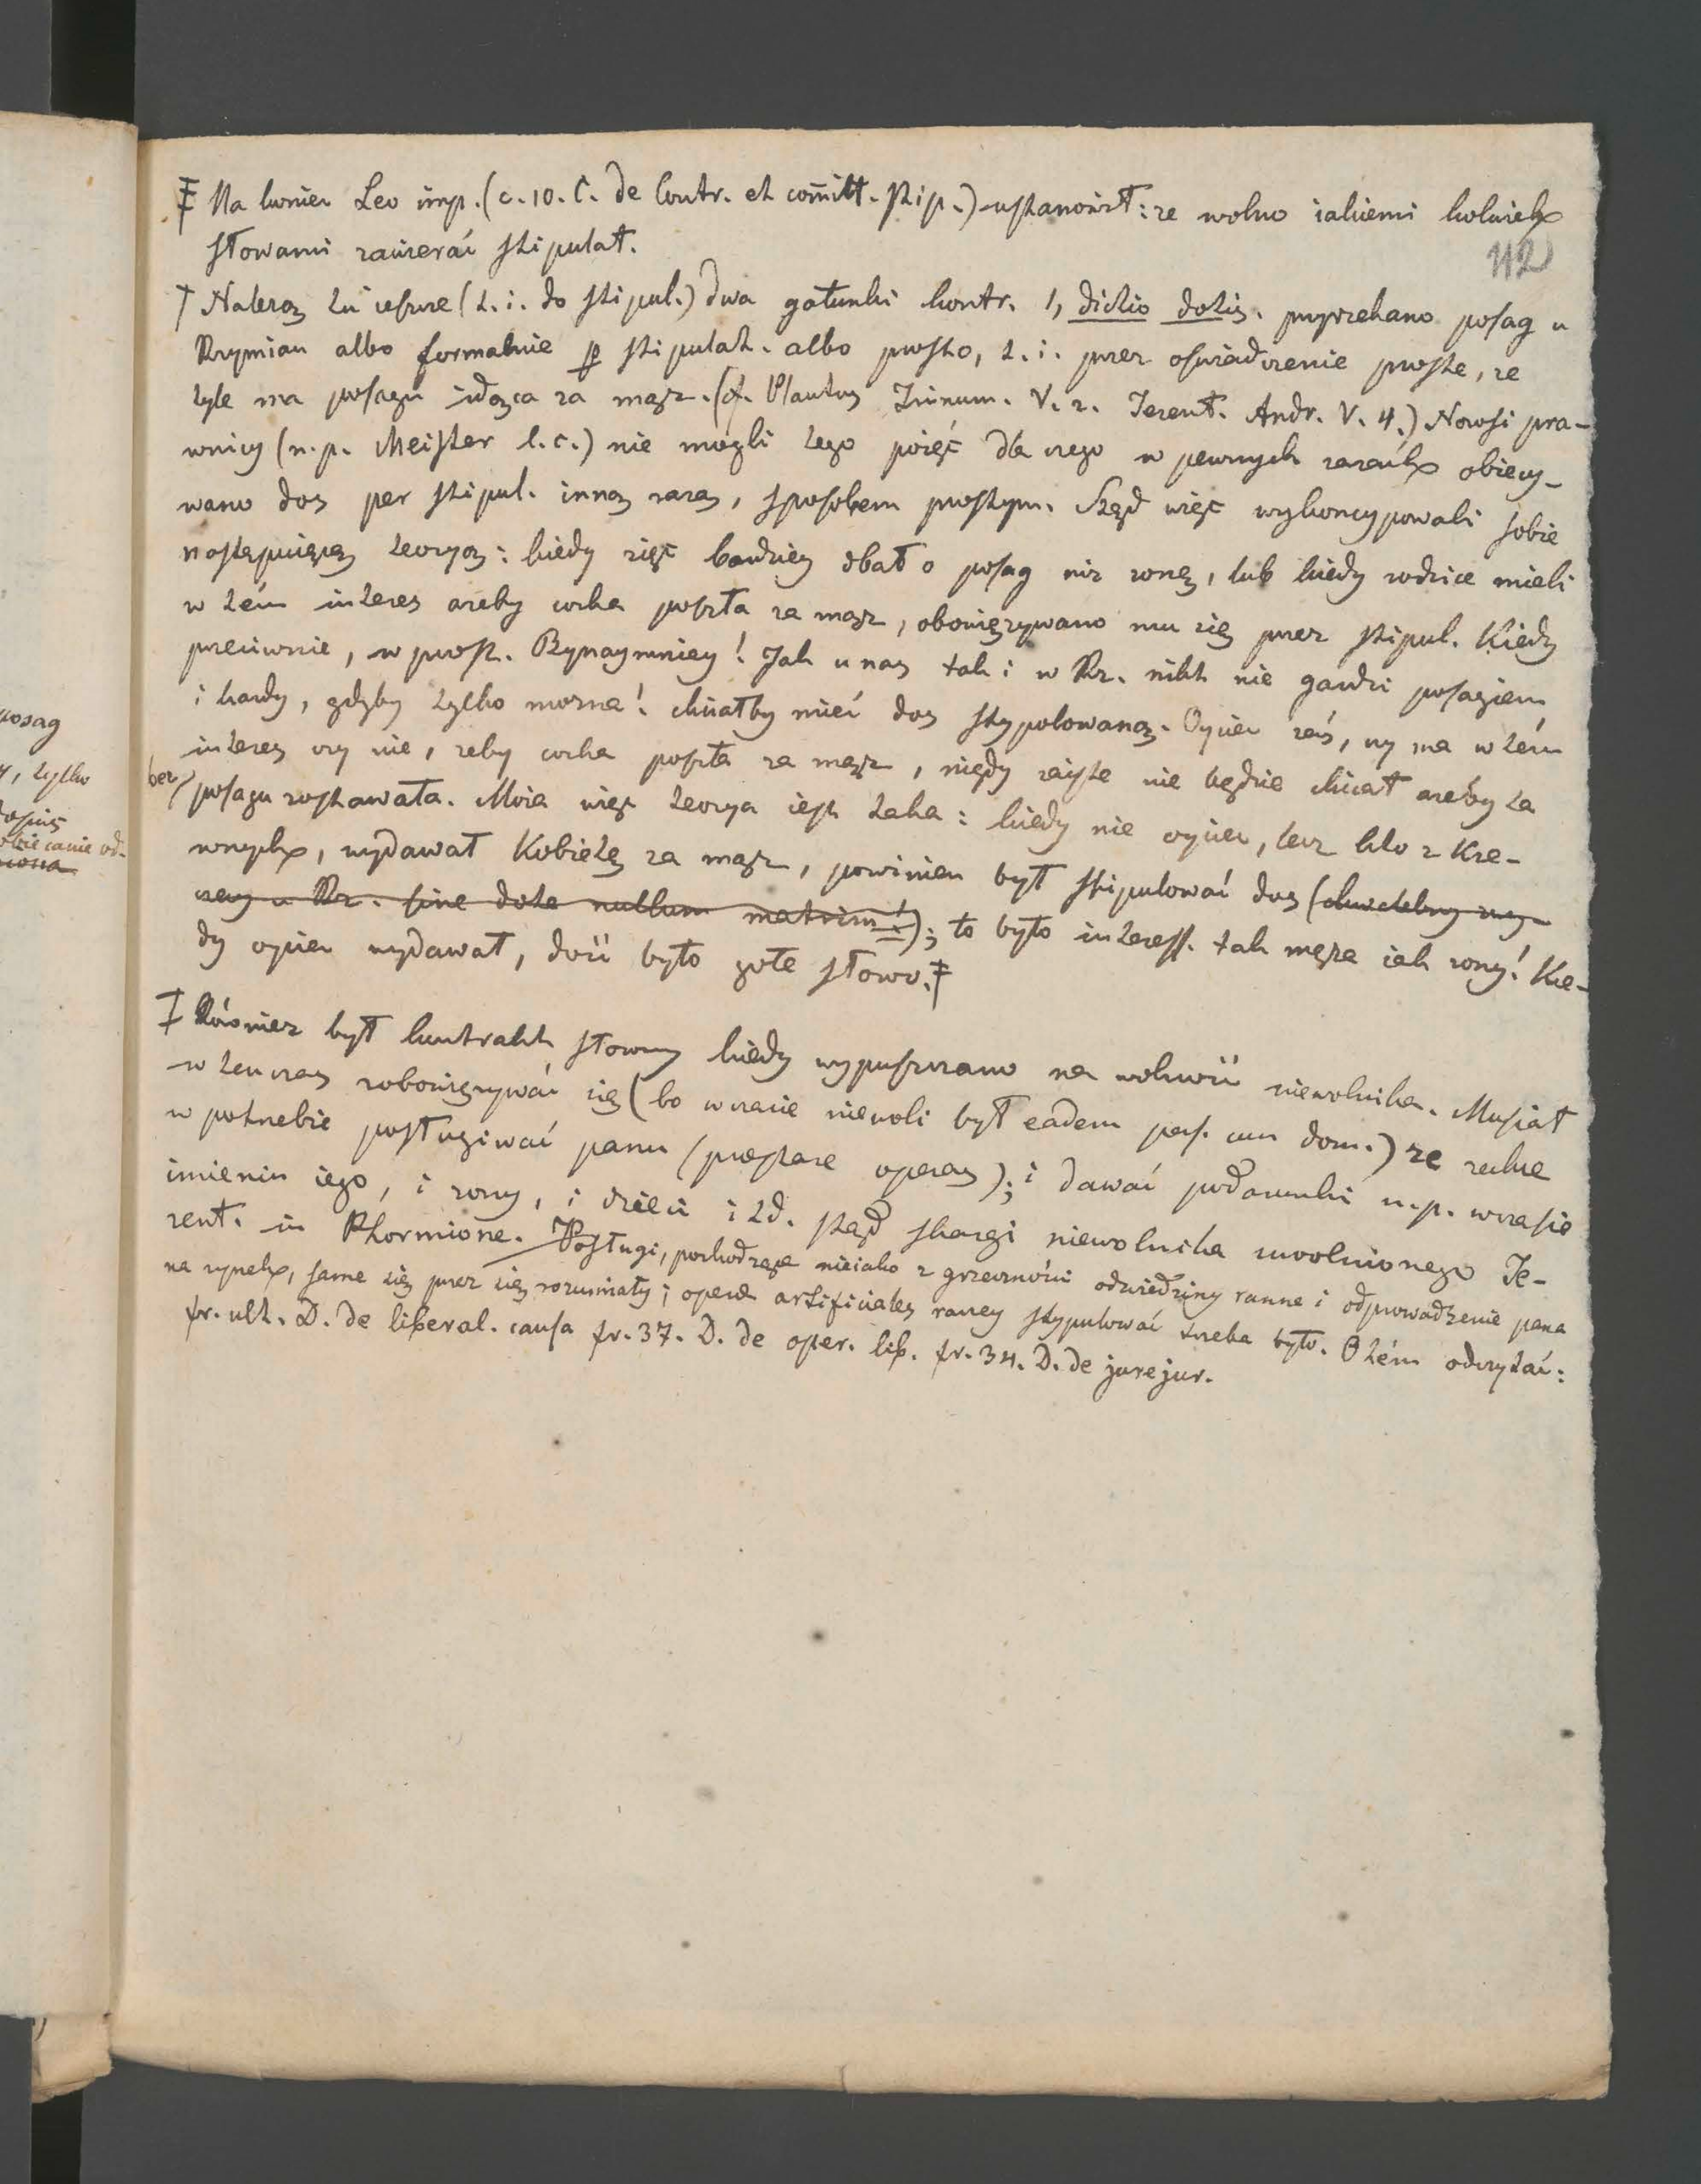 ‡ Na koniec Leo imp. (c. 10. C. de Contr. et com̄itt. stip.) ustanowił: ze wolno iakiemi kolwiek
słowami zawierać stipulat.
112
† Należą tu ieszcze (t. i. do stipul.) dwa gatunki kontr. 1, dictio dotis. przyrzekano posag u
Rzymian albo formalnie p stipulat. albo prosto, t. i. przez oświadczenie proste, ze
tyle ma posagu idąca za mąz. (cf. Plautus Trinum. V. 2. Terent. Andr. V. 4.) Nowsi pra-
wnicy (n. p. Meister l. c.) nie mogli tego poięć dla czego w pewnych razach obiecy-
wano dos per stipul. inną razą, sposobem prostym. Stąd więc wykoncypowali sobie
następuiącą teoryą: kiedy zięć bardziey dbał o posag niz zonę, lub kiedy rodzice mieli
w tém interes azeby corka poszła za mąz, obowięzywano mu się przez stipul. Kiedy
przeciwnie, w prost. Bynaymniey! Jak u nas tak i w Rz. nikt nie gardzi posagiem
i kazdy, gdyby tylko mozna! chciałby mieć dos stypulowaną. Oyciec zaś, czy ma w tém
interes czy nie, zeby corka poszła za mąz, nigdy zaiste nie będzie chciał azeby ta
bez posagu zostawała. Moia więc teorya iest taka: kiedy nie oyciec, lecz kto z Kre-
wnych, wydawał Kobietę za mąz, powinien był stipulować dos (chwalebny zwy-
czay u Rz. sine dote nullum matrim!); to było interess. tak męza iak zony! Kie-
dy oyciec wydawał, dość było gołe słowo. ‡
‡ Rownież był kontrakt słowny kiedy wypuszczano na wolność niewolnika. Musiał
w tenczas zobowięzywać się (bo w czasie niewoli był eadem pers. cum dom.) ze zechce
w potrzebie posługiwać panu (præstare operas); i dawać podarunki n. p. w czasie
imienin iego, i zony, i dzieci i td. stąd skargi niewolnika uwolnionego Te-
rent. in Phormione. Posługi, pochodzące nieiako z grzeczności odwiedziny ranne i odprowadzenie pana
na rynek, same się przez się rozumiały; operæ artificiales raczey stypulować trzeba było. O tém odczytać:
fr. ult. D. de liberal. causa fr. 37. D. de oper. lib. fr. 34. D. de jurejur.
posag
, tylko
obiecanie od-